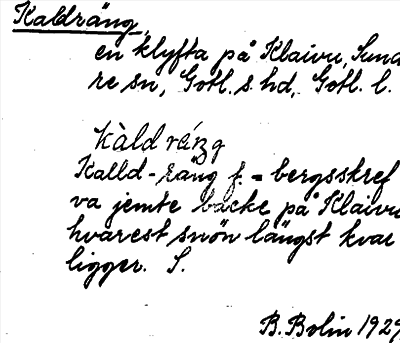 Kaldräng,
en klyfta på Klaivu, Sund
re sn, Gotl. s. hd, Gotl. l.
Kàld ráŋg
Kalld-räng f. = bergsskref
va jemte backe på Klaivu
hvarest snön längst kvar
ligger. S.
B. Bolin 1929